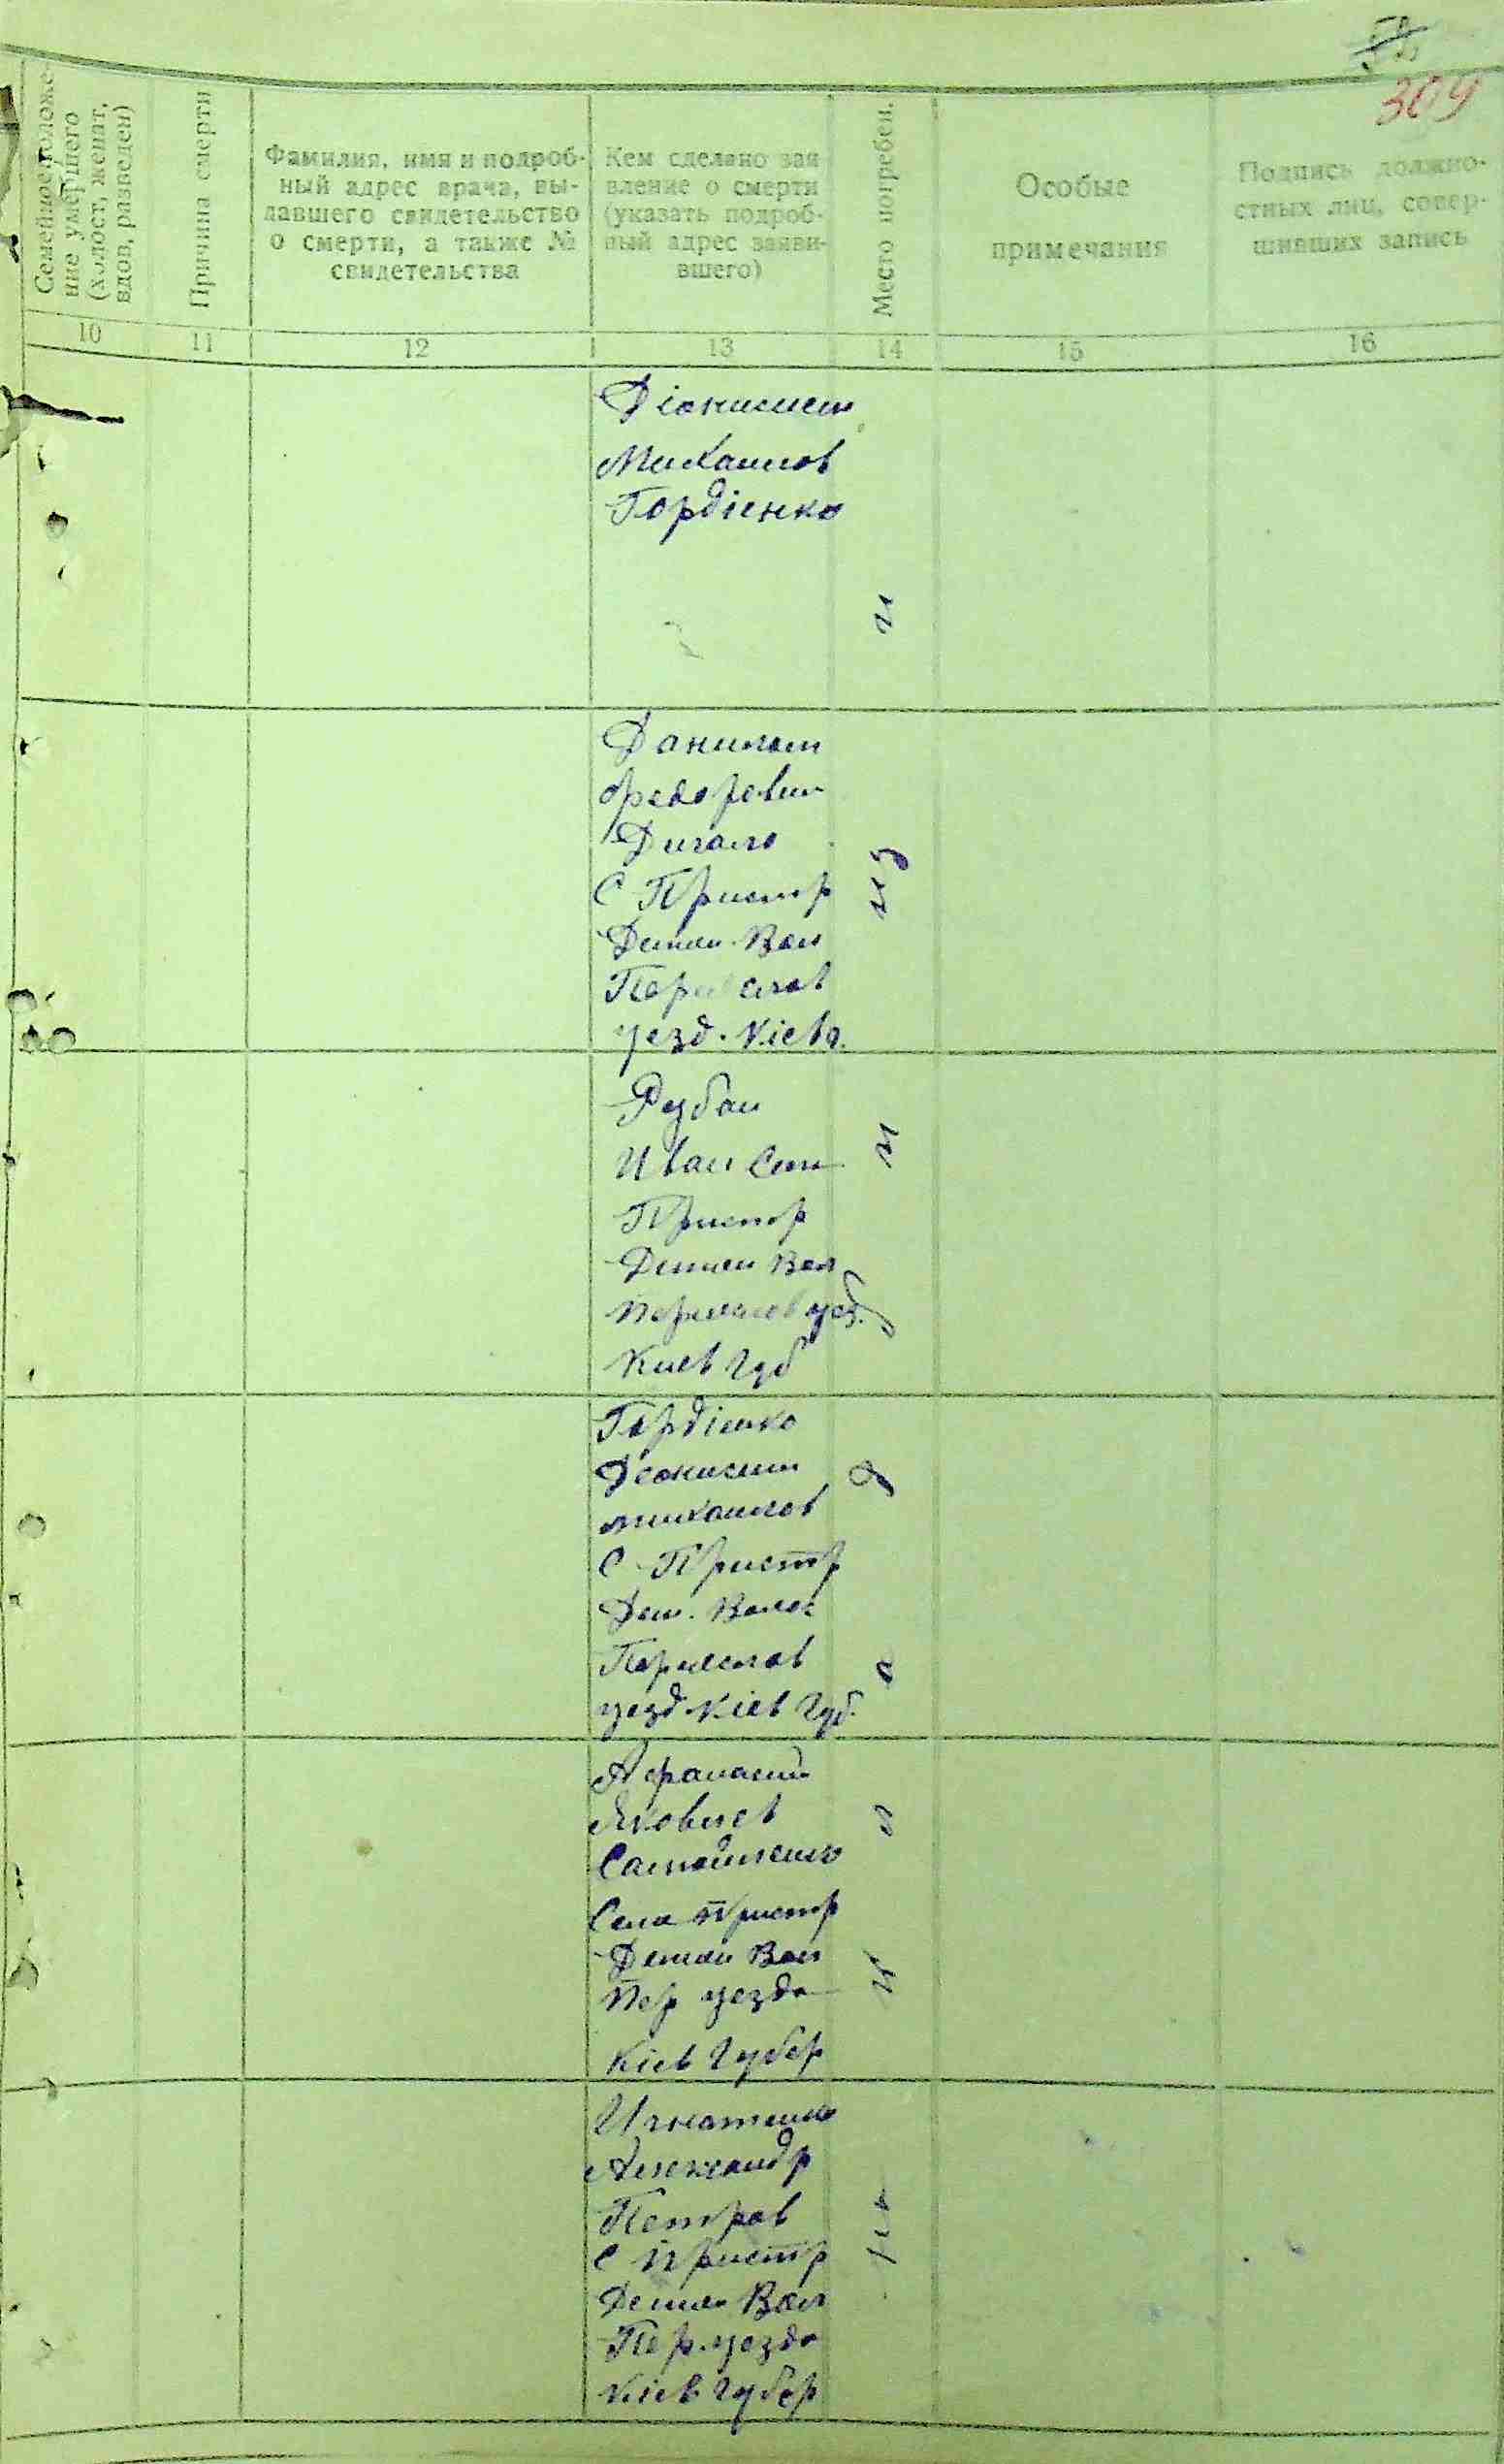 309
Семейное положе-
ние умершего
(холост, женат,
вдов, разведен)
Причина смерти
Фамилия, имя и подроб-
ный адрес врача, вы-
давшего свидетельство
о смерти, а также №
свидетельства
Кем сделано зая
вление о смерти
(указать подроб-
ный адрес заяви-
вшего)
Место погребен.
Особые
примечания
Подпись должно-
стных лиц, совер-
шивших запись
10 11 12 13 14 15 16
Діонисием
Михаилов
Гордіенко
Данилом
Федоревим
Дигало
С Пристр
Демян. Вол
Переяслов
уезд. Кіева.
Иван Сем
Пристр
Демян Вол
Переяслов уез.
Киев Губ
Гордіенко
Деонисием
михаилов
С. Пристр
Дем. Волос
Переяслов
уезд. Кіев Губ.
Афанасий
Яковлев
Самойленко
Села Пристр
Демян Вол
Пер уезда
Кіев Губер
Игнатенко
Александр
Петров
С Пристр
Демян Вол
Пер. уезда
Кіев Губер